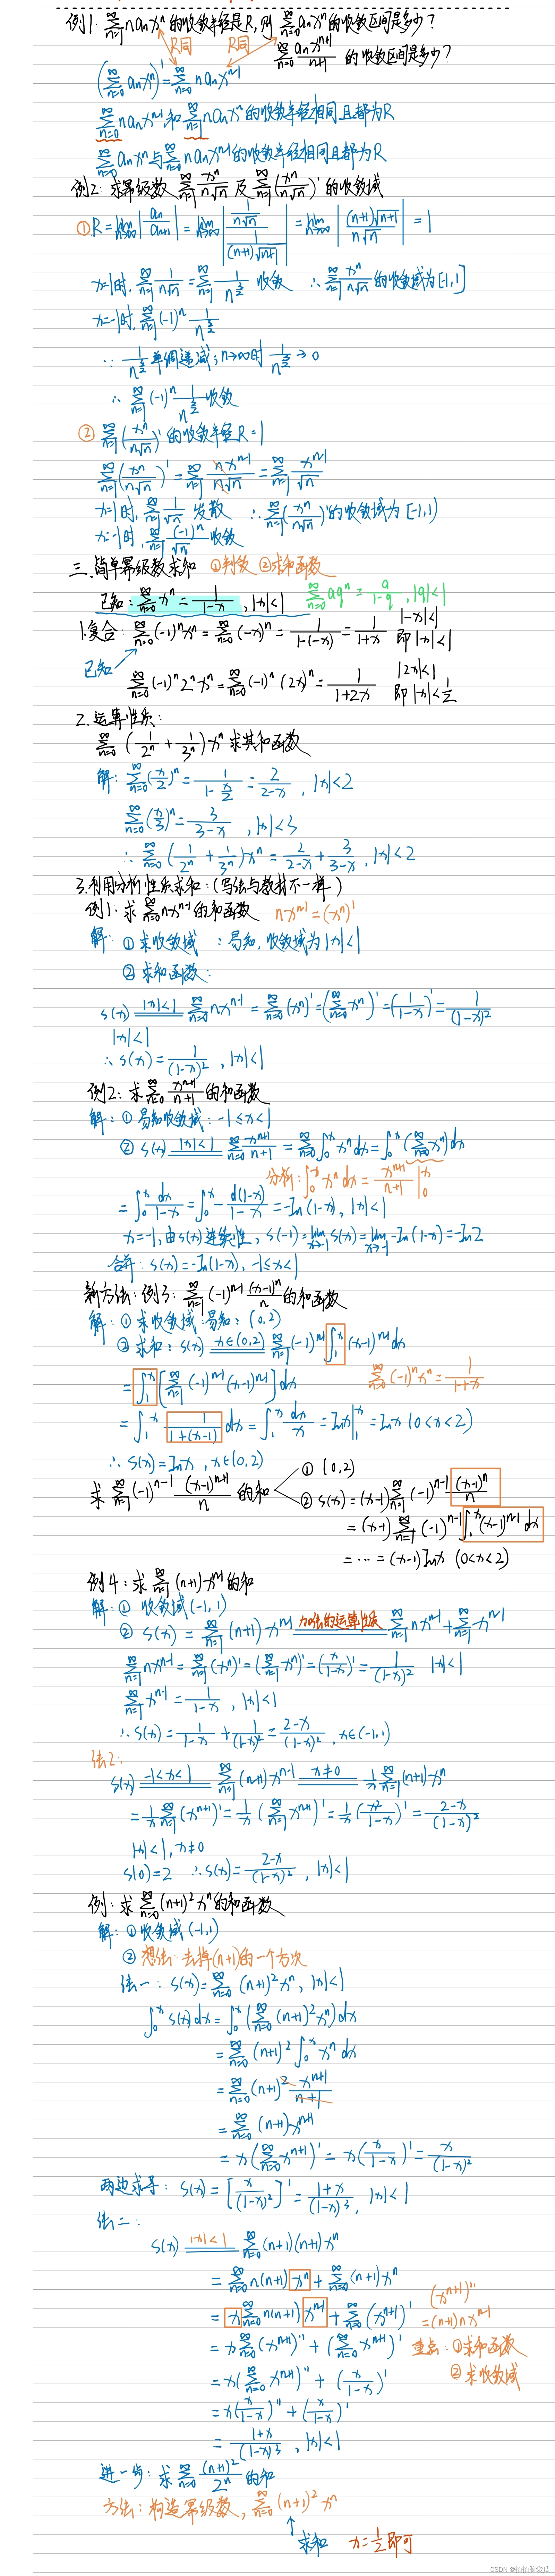 例1: ∑_{n=1}^∞ n aₙ xⁿ 的收敛半径是R, 则 ∑_{n=0}^∞ aₙxⁿ 的收敛区间是多少?
R同 R同 ∑_{n=0}^∞ aₙxⁿ⁺¹/(n+1) 的收敛区间是多少?
(∑_{n=0}^∞ aₙxⁿ)' = ∑_{n=0}^∞ n aₙ xⁿ⁻¹
∑_{n=0}^∞ n aₙ xⁿ⁻¹ 和 ∑_{n=1}^∞ n aₙ xⁿ 的收敛半径相同且都为R
∑_{n=0}^∞ aₙxⁿ 与 ∑_{n=0}^∞ n aₙ xⁿ⁻¹ 的收敛半径相同且都为R
例2: 求幂级数 ∑_{n=1}^∞ xⁿ/(n√n) 及 ∑_{n=1}^∞ (xⁿ/(n√n))' 的收敛域
① R = lim_{n→∞} |aₙ/aₙ₊₁| = lim_{n→∞} |(1/(n√n))/(1/((n+1)√(n+1)))| = lim_{n→∞} |(n+1)√(n+1)/(n√n)| = 1
x=1时, ∑_{n=1}^∞ 1/(n√n) = ∑_{n=1}^∞ 1/n^{3/2} 收敛 ∴ ∑_{n=1}^∞ xⁿ/(n√n) 的收敛域为[-1,1]
x=-1时, ∑_{n=1}^∞ (-1)ⁿ 1/n^{3/2}
∵ 1/n^{3/2} 单调递减, n→∞时 1/n^{3/2} → 0
∴ ∑_{n=1}^∞ (-1)ⁿ 1/n^{3/2} 收敛
② ∑_{n=1}^∞ (xⁿ/(n√n))' 的收敛半径R=1
∑_{n=1}^∞ (xⁿ/(n√n))' = ∑_{n=1}^∞ n xⁿ⁻¹/(n√n) = ∑_{n=1}^∞ xⁿ⁻¹/√n
x=1时, ∑_{n=1}^∞ 1/√n 发散 ∴ ∑_{n=1}^∞ (xⁿ/(n√n))' 的收敛域为 [-1,1)
x=-1时, ∑_{n=1}^∞ (-1)ⁿ/√n 收敛
三.简单幂级数求和 ①判敛 ②求和函数
已知: ∑_{n=0}^∞ xⁿ = 1/(1-x), |x|<1 ∑_{n=0}^∞ aqⁿ = a/(1-q), |q|<1
1.复合: ∑_{n=0}^∞ (-1)ⁿxⁿ = ∑_{n=0}^∞ (-x)ⁿ = 1/(1-(-x)) = 1/(1+x) |-x|<1 即|x|<1
已知
∑_{n=0}^∞ (-1)ⁿ2ⁿxⁿ = ∑_{n=0}^∞ (-1)ⁿ(2x)ⁿ = 1/(1+2x) |2x|<1 即|x|<1/2
2.运算性质:
∑_{n=0}^∞ (1/2ⁿ + 1/3ⁿ)xⁿ 求其和函数
解: ∑_{n=0}^∞ (x/2)ⁿ = 1/(1-x/2) = 2/(2-x), |x|<2
∑_{n=0}^∞ (x/3)ⁿ = 3/(3-x), |x|<3
∴ ∑_{n=0}^∞ (1/2ⁿ + 1/3ⁿ)xⁿ = 2/(2-x) + 3/(3-x), |x|<2
3.利用分析性质求和: (写法与教材不一样)
例1: 求 ∑_{n=0}^∞ nxⁿ⁻¹ 的和函数 nxⁿ⁻¹=(xⁿ)'
解: ① 求收敛域: 易知, 收敛域为|x|<1
② 求和函数:
s(x) =|x|<1= ∑_{n=0}^∞ nxⁿ⁻¹ = ∑_{n=0}^∞ (xⁿ)' = (∑_{n=0}^∞ xⁿ)' = (1/(1-x))' = 1/(1-x)²
|x|<1
∴ s(x) = 1/(1-x)², |x|<1
例2: 求 ∑_{n=0}^∞ xⁿ⁺¹/(n+1) 的和函数
解: ① 易知收敛域: -1≤x<1
② s(x) =|x|<1= ∑_{n=0}^∞ xⁿ⁺¹/(n+1) = ∑_{n=0}^∞ ∫₀ˣ xⁿdx = ∫₀ˣ (∑_{n=0}^∞ xⁿ)dx
分析: ∫₀ˣ xⁿdx = xⁿ⁺¹/(n+1) |₀ˣ
= ∫₀ˣ dx/(1-x) = ∫₀ˣ -d(1-x)/(1-x) = -ln(1-x), |x|<1
x=-1, 由s(x)连续性, s(-1) = lim_{x→-1} s(x) = lim_{x→-1} -ln(1-x) = -ln2
合并: s(x) = -ln(1-x), -1≤x<1
新方法: 例3: ∑_{n=1}^∞ (-1)ⁿ⁻¹ (x-1)ⁿ/n 的和函数
解: ① 求收敛域: 易知: (0,2)
② 求和: s(x) =x∈(0,2)= ∑_{n=1}^∞ (-1)ⁿ⁻¹ ∫₁ˣ (x-1)ⁿ⁻¹dx
= ∫₁ˣ [∑_{n=1}^∞ (-1)ⁿ⁻¹(x-1)ⁿ⁻¹]dx ∑_{n=0}^∞ (-1)ⁿxⁿ = 1/(1+x)
= ∫₁ˣ 1/(1+(x-1)) dx = ∫₁ˣ dx/x = lnx|₁ˣ = lnx (0<x<2)
∴ s(x) = lnx, x∈(0,2)
求 ∑_{n=1}^∞ (-1)ⁿ⁻¹ (x-1)ⁿ⁺¹/n 的和 ① (0,2)
② s(x) = (x-1)∑_{n=1}^∞ (-1)ⁿ⁻¹ (x-1)ⁿ/n
= (x-1)∑_{n=1}^∞ (-1)ⁿ⁻¹ ∫₁ˣ (x-1)ⁿ⁻¹dx
= ··· = (x-1)lnx (0<x<2)
例4: 求 ∑_{n=1}^∞ (n+1)xⁿ⁻¹ 的和
解: ① 收敛域(-1,1)
② s(x) = ∑_{n=1}^∞ (n+1)xⁿ⁻¹ =加法的运算性质= ∑_{n=1}^∞ nxⁿ⁻¹ + ∑_{n=1}^∞ xⁿ⁻¹
∑_{n=1}^∞ nxⁿ⁻¹ = ∑_{n=1}^∞ (xⁿ)' = (∑_{n=1}^∞ xⁿ)' = (x/(1-x))' = 1/(1-x)² |x|<1
∑_{n=1}^∞ xⁿ⁻¹ = 1/(1-x), |x|<1
∴ s(x) = 1/(1-x) + 1/(1-x)² = (2-x)/(1-x)², x∈(-1,1)
法2:
s(x) =-1<x<1= ∑_{n=1}^∞ (n+1)xⁿ⁻¹ =x≠0= 1/x ∑_{n=1}^∞ (n+1)xⁿ
= 1/x ∑_{n=1}^∞ (xⁿ⁺¹)' = 1/x (∑_{n=1}^∞ xⁿ⁺¹)' = 1/x (x²/(1-x))' = (2-x)/(1-x)²
|x|<1, x≠0
s(0)=2 ∴ s(x) = (2-x)/(1-x)², |x|<1
例: 求 ∑_{n=0}^∞ (n+1)²xⁿ 的和函数
解: ① 收敛域(-1,1)
② 想法: 去掉(n+1)的一个方次
法一: s(x) = ∑_{n=0}^∞ (n+1)²xⁿ, |x|<1
∫₀ˣ s(x)dx = ∫₀ˣ (∑_{n=0}^∞ (n+1)²xⁿ)dx
= ∑_{n=0}^∞ (n+1)² ∫₀ˣ xⁿdx
= ∑_{n=0}^∞ (n+1)² xⁿ⁺¹/(n+1)
= ∑_{n=0}^∞ (n+1)xⁿ⁺¹
= x(∑_{n=0}^∞ xⁿ⁺¹)' = x(x/(1-x))' = x/(1-x)²
两边求导: s(x) = [x/(1-x)²]' = (1+x)/(1-x)³, |x|<1
法二:
s(x) =|x|<1= ∑_{n=0}^∞ (n+1)(n+1)xⁿ
= ∑_{n=0}^∞ n(n+1)xⁿ + ∑_{n=0}^∞ (n+1)xⁿ
= x∑_{n=0}^∞ n(n+1)xⁿ⁻¹ + ∑_{n=0}^∞ (xⁿ⁺¹)' (xⁿ⁺¹)'' =(n+1)nxⁿ⁻¹
= x∑_{n=0}^∞ (xⁿ⁺¹)'' + (∑_{n=0}^∞ xⁿ⁺¹)' 重点: ①求和函数
= x(∑_{n=0}^∞ xⁿ⁺¹)'' + (x/(1-x))' ②求收敛域
= x(x/(1-x))'' + (x/(1-x))'
= (1+x)/(1-x)³, |x|<1
进一步: 求 ∑_{n=0}^∞ (n+1)²/2ⁿ 的和
方法: 构造幂级数, ∑_{n=0}^∞ (n+1)²xⁿ
求和 x=1/2即可
CSDN @拍拍脑袋瓜